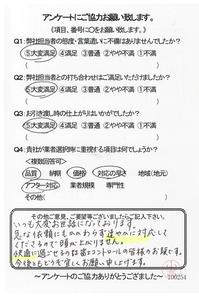 アンケートにご協力お願い致します。
(項目、番号に〇をお願い致します。)
Q1: 弊社担当者の態度・言葉遣いに不備はありませんでしたか?
⑤大変満足 ④満足 ③普通 ②やや不満 ①不備
Q2: 弊社担当者との打ち合わせはご満足いただけましたか?
⑤大変満足 ④満足 ③普通 ②やや不満 ①不備
Q3: お引き渡し時の仕上がりはいかがでしたか?
⑤大変満足 ④満足 ③普通 ②やや不満 ①不備
Q4: 貴社が業者選択時に重視する項目は何でしょうか?
<複数回答可>
品質 納期 価格 対応の早さ 地域(地元)
アフター対応 業者規模 専門性
その他( )
その他ご意見、ご要望等ございましたらご記入下さい。
いつも大変お世話になっております。
急な依頼にもかかわらず速やかに対応して
くださるので頭の上がりません。
快適に過ごせるのは コントロールの皆様のお陰です。
今後ともどうぞ宜しくお願い申し上げます。
100254
〜アンケートのご協力ありがとうございました〜